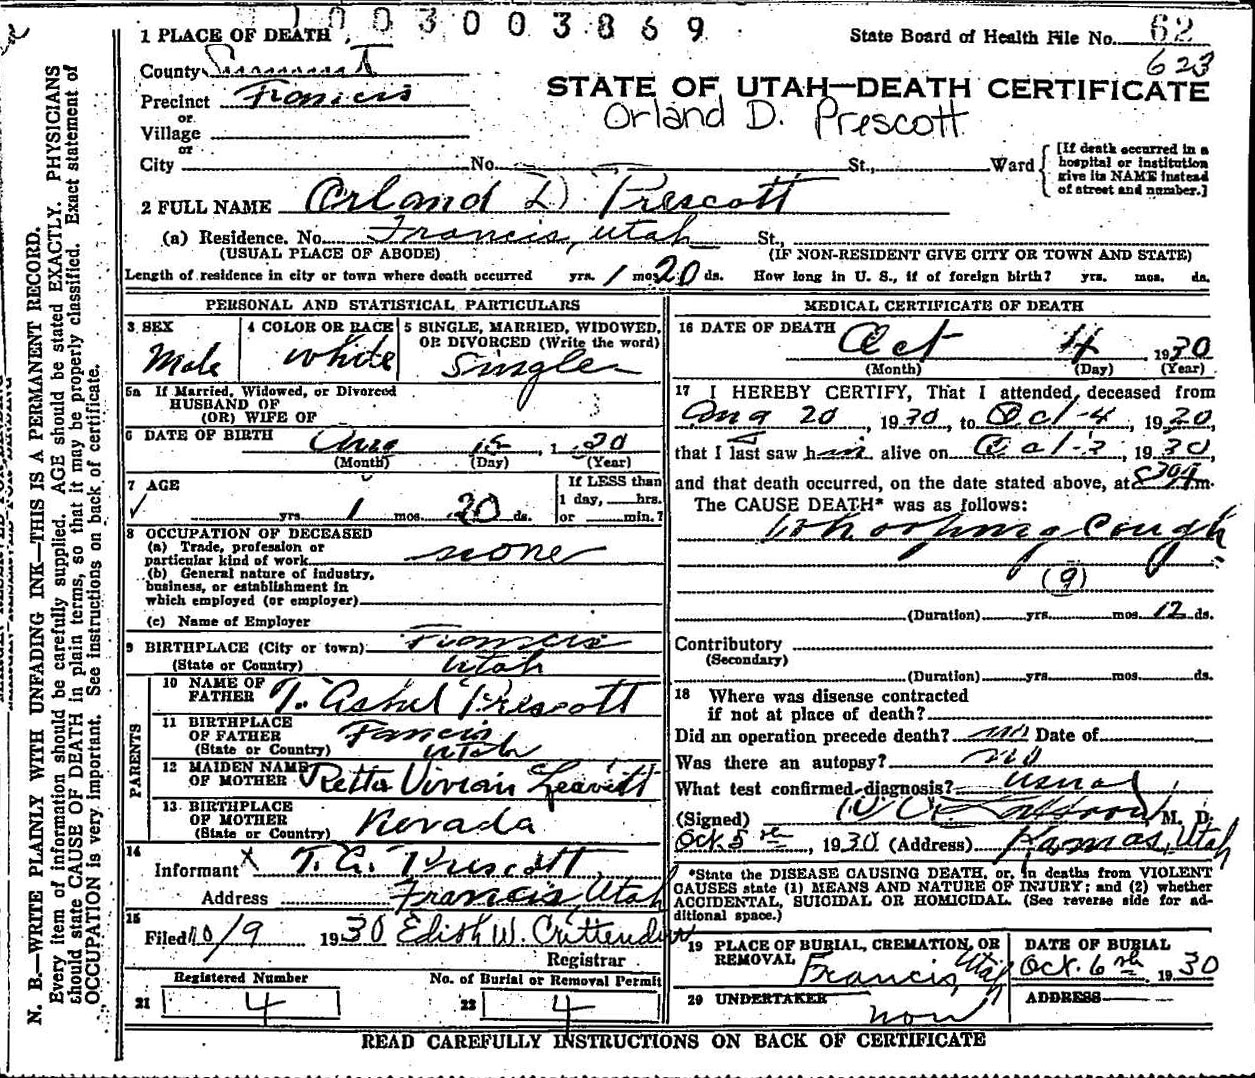 1003003869
1 PLACE OF DEATH
State Board of Health File No. 62
623
County Summit
STATE OF UTAH—DEATH CERTIFICATE
Precinct Francis
Orland D. Prescott
or
Village
or
City No. St., Ward
[If death occurred in a hospital or institution give its NAME instead of street and number.]
2 FULL NAME Orland D. Prescott
(a) Residence. No. Francis, Utah St.,
(USUAL PLACE OF ABODE) (IF NON-RESIDENT GIVE CITY OR TOWN AND STATE)
Length of residence in city or town where death occurred yrs. 1 mos. 20 ds. How long in U. S., if of foreign birth? yrs. mos. ds.
PERSONAL AND STATISTICAL PARTICULARS
3 SEX 4 COLOR OR RACE 5 SINGLE, MARRIED, WIDOWED,
OR DIVORCED (Write the word)
Male White Single
5a If Married, Widowed, or Divorced
HUSBAND OF
(OR) WIFE OF
6 DATE OF BIRTH Aug 15, 1
(Month) (Day) (Year)
7 AGE If LESS than
1 day, hrs.
yrs. 1 mos. 20 ds. or min.?
8 OCCUPATION OF DECEASED
(a) Trade, profession or
particular kind of work none
(b) General nature of industry,
business, or establishment in
which employed (or employer)
(c) Name of Employer
9 BIRTHPLACE (City or town) Francis
(State or Country) Utah
PARENTS
10 NAME OF
FATHER T. Ashel Prescott
11 BIRTHPLACE
OF FATHER Francis
(State or Country) Utah
12 MAIDEN NAME
OF MOTHER Retta Vivian Leavitt
13 BIRTHPLACE
OF MOTHER
(State or Country) Nevada
14
Informant X T. A. Prescott
Address Francis, Utah
15
Filed 10/9 1930 Edith W. Crittenden
Registrar
Registered Number No. of Burial or Removal Permit
21 4 22 4
MEDICAL CERTIFICATE OF DEATH
16 DATE OF DEATH Oct 4, 1930
(Month) (Day) (Year)
17 I HEREBY CERTIFY, That I attended deceased from
Aug 20, 1930, to Oct-4, 1930,
that I last saw him alive on Oct-3, 1930,
and that death occurred, on the date stated above, at m.
The CAUSE DEATH* was as follows:
Whooping Cough
(9)
(Duration) yrs. mos. 12 ds.
Contributory
(Secondary)
(Duration) yrs. mos. ds.
18 Where was disease contracted
if not at place of death?
Did an operation precede death? no Date of
Was there an autopsy? no
What test confirmed diagnosis? usual
(Signed) M. D.
Oct. 5th, 1930 (Address) Kamas, Utah
*State the DISEASE CAUSING DEATH, or, in deaths from VIOLENT
CAUSES state (1) MEANS AND NATURE OF INJURY; and (2) whether
ACCIDENTAL, SUICIDAL OR HOMICIDAL. (See reverse side for ad-
ditional space.)
19 PLACE OF BURIAL, CREMATION, OR
REMOVAL Francis, Utah
DATE OF BURIAL
Oct. 6th 1930
20 UNDERTAKER ADDRESS
READ CAREFULLY INSTRUCTIONS ON BACK OF CERTIFICATE
N. B.—WRITE PLAINLY WITH UNFADING INK—THIS IS A PERMANENT RECORD.
Every item of information should be carefully supplied. AGE should be stated EXACTLY. PHYSICIANS
should state CAUSE OF DEATH in plain terms, so that it may be properly classified. Exact statement of
OCCUPATION is very important. See instructions on back of certificate.